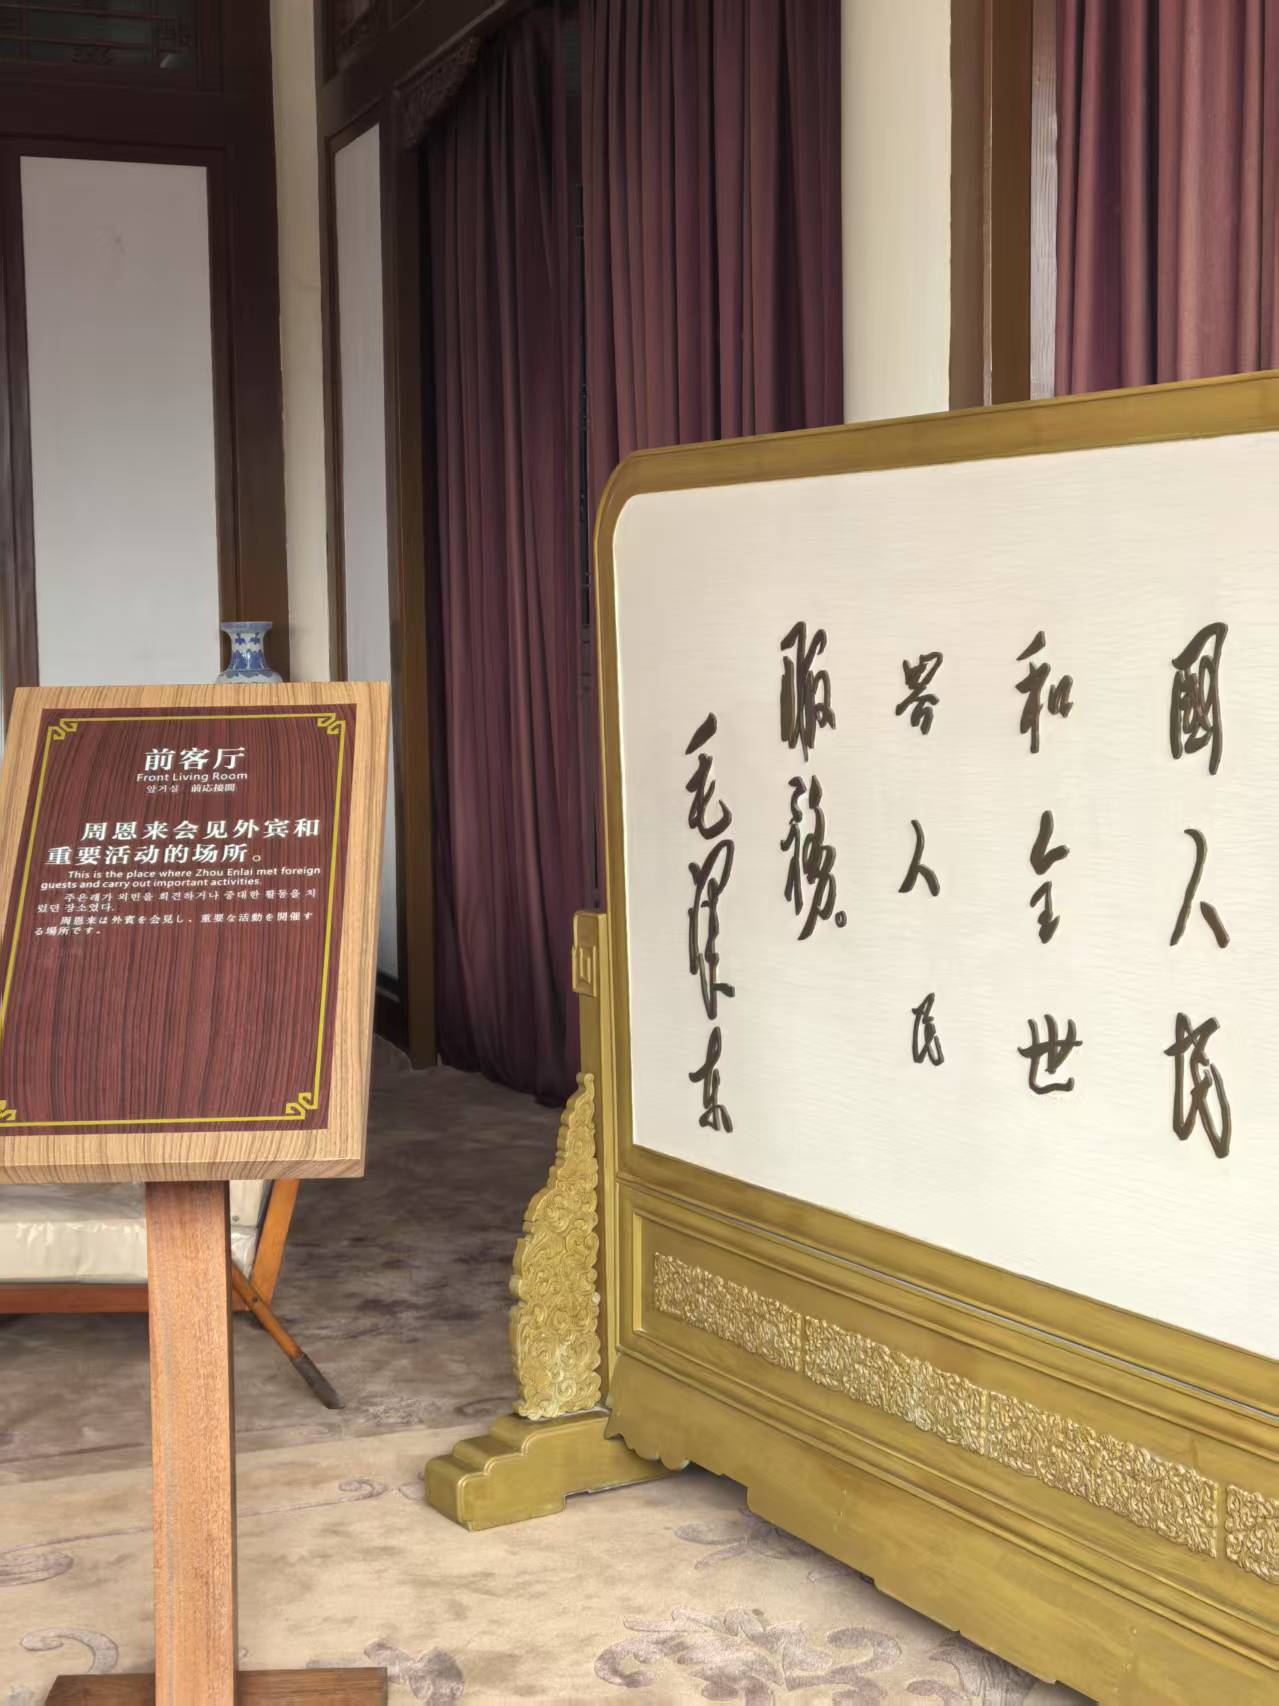 前客厅
Front Living Room
앞거실 前応接間
周恩来会见外宾和
重要活动的场所。
This is the place where Zhou Enlai met foreign
guests and carry out important activities.
주은래가 외빈을 회견하거나 중대한 활동을 치
렀던 장소였다.
周恩来は外賓を会見し、重要な活動を開催す
る場所です。
國人民
和全世
界人民
服務。
毛澤东